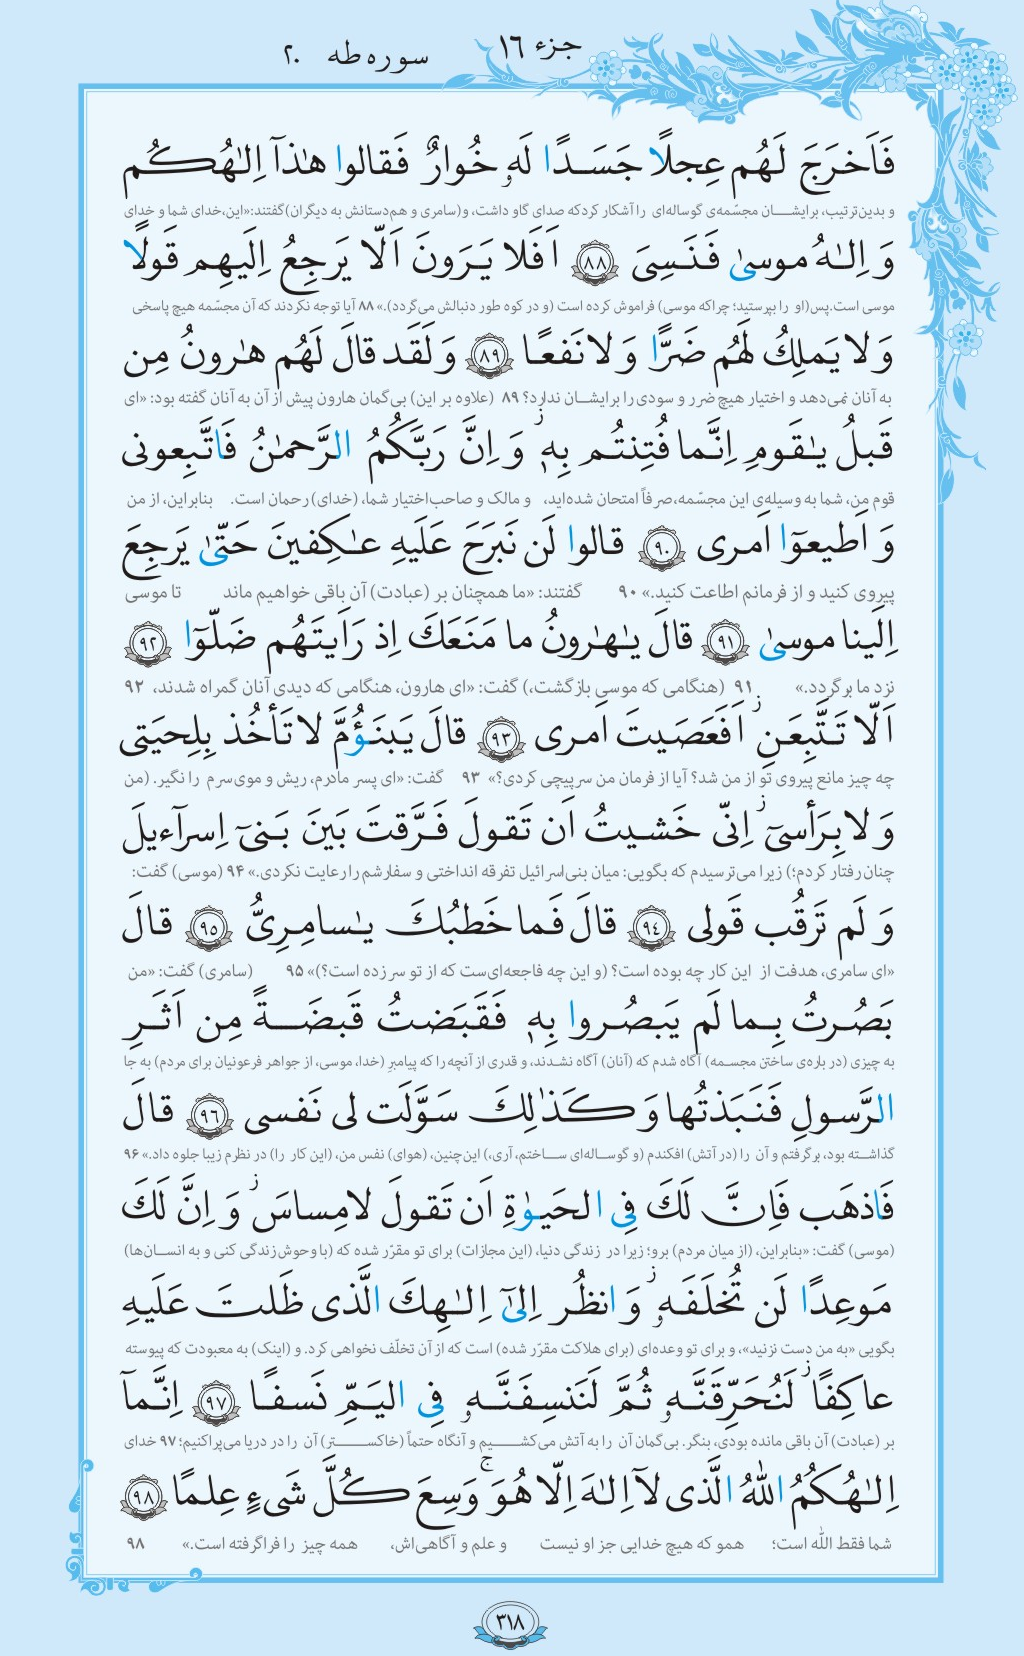 جزء ۱۶
سوره طه ۲۰
فَاَخرَجَ لَهُم عِجلًا جَسَدًا لَهٗ خُوارٌ فَقالوا هٰذآ اِلٰهُكُم
و بدین‌ترتیب، برایشان مجسّمه‌ی گوساله‌ای را آشکار کرد که صدای گاو داشت، و(سامری و هم‌دستانش به دیگران)گفتند:«این،خدای شما و خدای
وَ اِلٰهُ موسىٰ فَنَسِىَ ﴿٨٨﴾ اَفَلا يَرَونَ اَلّا يَرجِعُ اِلَيهِم قَولًا
موسی است.پس(او را بپرستید؛ چراکه موسی) فراموش کرده است (و در کوه طور دنبالش می‌گردد).» ۸۸ آیا توجه نکردند که آن مجسّمه هیچ پاسخی
وَ لا يَملِكُ لَهُم ضَرًّا وَ لا نَفعًا ﴿٨٩﴾ وَ لَقَد قالَ لَهُم هٰرونُ مِن
به آنان نمی‌دهد و اختیار هیچ ضرر و سودی را برایشان ندارد؟ ۸۹ (علاوه بر این) بی‌گمان هارون پیش از آن به آنان گفته بود: «ای
قَبلُ يٰقَومِ اِنَّما فُتِنتُم بِهٖ ۖ وَ اِنَّ رَبَّكُمُ الرَّحمٰنُ فَاتَّبِعونى
قوم من، شما به وسیله‌ی این مجسّمه،صرفاً امتحان شده‌اید، و مالک و صاحب‌اختیار شما، (خدای) رحمان است. بنابراین، از من
وَ اَطيعوٓا اَمرى ﴿٩٠﴾ قالوا لَن نَبرَحَ عَلَيهِ عٰكِفينَ حَتّىٰ يَرجِعَ
پیروی کنید و از فرمانم اطاعت کنید.» ۹۰ گفتند: «ما همچنان بر (عبادت) آن باقی خواهیم ماند تا موسی
اِلَينا موسىٰ ﴿٩١﴾ قالَ يٰهٰرونُ ما مَنَعَكَ اِذ رَاَيتَهُم ضَلّوٓا ﴿٩٢﴾
نزد ما برگردد.» ۹۱ (هنگامی که موسی بازگشت،) گفت: «ای هارون، هنگامی که دیدی آنان گمراه شدند، ۹۲
اَلّا تَتَّبِعَنِ ۖ اَفَعَصَيتَ اَمرى ﴿٩٣﴾ قالَ يَبنَؤُمَّ لا تَأخُذ بِلِحيَتى
چه چیز مانع پیروی تو از من شد؟ آیا از فرمان من سرپیچی کردی؟» ۹۳ گفت: «ای پسر مادرم، ریش و موی سرم را نگیر. (من
وَ لا بِرَأسىٓ ۖ اِنّى خَشيتُ اَن تَقولَ فَرَّقتَ بَينَ بَنىٓ اِسرآءيلَ
چنان رفتار کردم؛) زیرا می‌ترسیدم که بگویی: میان بنی‌اسرائیل تفرقه انداختی و سفارشم را رعایت نکردی.» ۹۴ (موسی) گفت:
وَ لَم تَرقُب قَولى ﴿٩٤﴾ قالَ فَما خَطبُكَ يٰسامِرِىُّ ﴿٩٥﴾ قالَ
«ای سامری، هدفت از این کار چه بوده است؟ (و این چه فاجعه‌ای‌ست که از تو سر زده است؟)» ۹۵ (سامری) گفت: «من
بَصُرتُ بِما لَم يَبصُروا بِهٖ فَقَبَضتُ قَبضَةً مِن اَثَرِ
به چیزی (در باره‌ی ساختن مجسمه) آگاه شدم که (آنان) آگاه نشدند، و قدری از آنچه را که پیامبرِ (خدا، موسی، از جواهر فرعونیان برای مردم) به جا
الرَّسولِ فَنَبَذتُها وَ كَذٰلِكَ سَوَّلَت لى نَفسى ﴿٩٦﴾ قالَ
گذاشته بود، برگرفتم و آن را (در آتش) افکندم (و گوساله‌ای ساختم، آری،) این‌چنین، (هوای) نفس من، (این کار را) در نظرم زیبا جلوه داد.» ۹۶
فَاذهَب فَاِنَّ لَكَ فِى الحَيوٰةِ اَن تَقولَ لا مِساسَ ۖ وَ اِنَّ لَكَ
(موسی) گفت: «بنابراین، (از میان مردم) برو؛ زیرا در زندگی دنیا، (این مجازات) برای تو مقرّر شده که (با وحوش زندگی کنی و به انسان‌ها)
مَوعِدًا لَن تُخلَفَهٗ ۖ وَ انظُر اِلىٰٓ اِلٰهِكَ الَّذى ظَلتَ عَلَيهِ
بگویی «به من دست نزنید»، و برای تو وعده‌ای (برای هلاکت مقرّر شده) است که از آن تخلّف نخواهی کرد. و (اینک) به معبودت که پیوسته
عاكِفًا ۖ لَنُحَرِّقَنَّهٗ ثُمَّ لَنَنسِفَنَّهٗ فِى اليَمِّ نَسفًا ﴿٩٧﴾ اِنَّمآ
بر (عبادت) آن باقی مانده بودی، بنگر. بی‌گمان آن را به آتش می‌کشیم و آنگاه حتماً (خاکستر) آن را در دریا می‌پراکنیم؛ ۹۷ خدای
اِلٰهُكُمُ اللّٰهُ الَّذى لآ اِلٰهَ اِلّا هُوَ ۚ وَسِعَ كُلَّ شَىءٍ عِلمًا ﴿٩٨﴾
شما فقط اللّٰه است؛ همو که هیچ خدایی جز او نیست و علم و آگاهی‌اش، همه چیز را فراگرفته است.» ۹۸
۳۱۸